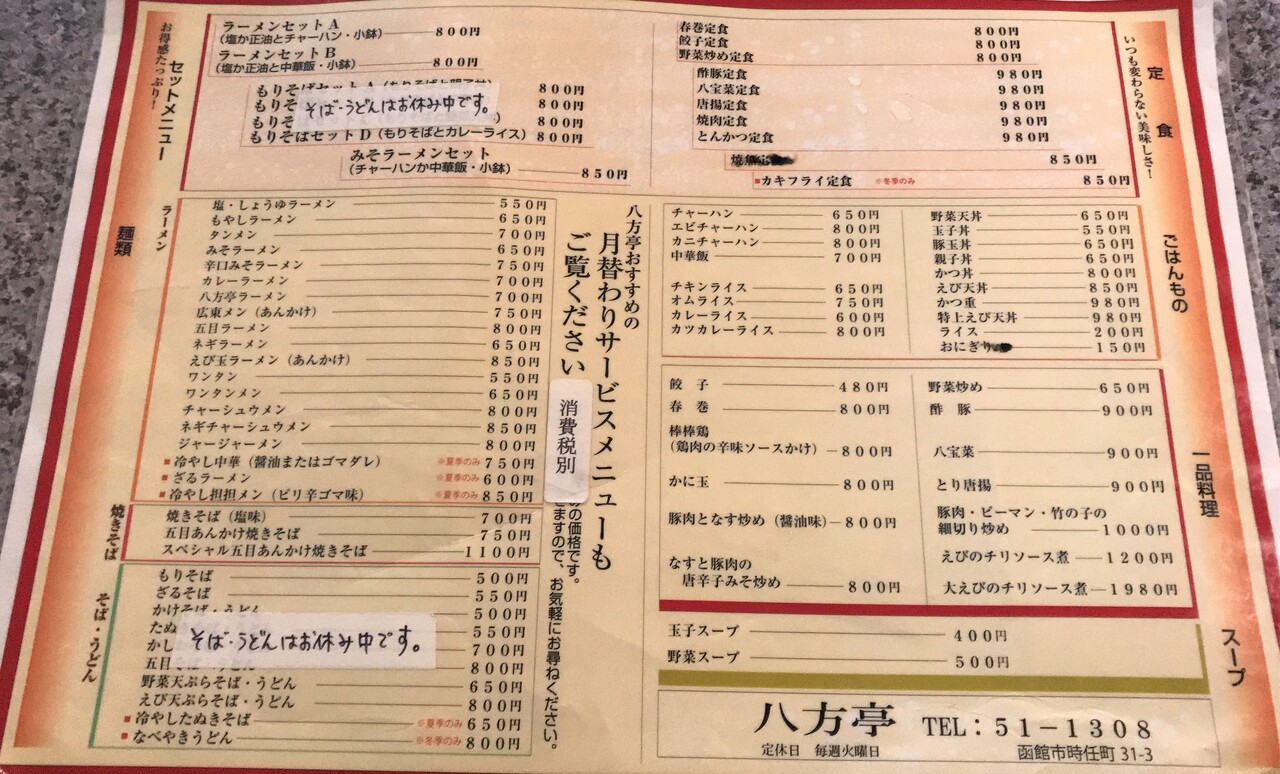 お得感たっぷり！
セットメニュー
ラーメンセットA
（塩か正油とチャーハン・小鉢） 800円
ラーメンセットB
（塩か正油と中華飯・小鉢） 800円
もりそばセットA 800円
もりそ 800円
もりそ 800円
そば・うどんはお休み中です。
もりそばセットD（もりそばとカレーライス） 800円
みそラーメンセット
（チャーハンか中華飯・小鉢） 850円
いつも変わらない美味しさ！
定食
春巻定食 800円
餃子定食 800円
野菜炒め定食 800円
酢豚定食 980円
八宝菜定食 980円
唐揚定食 980円
焼肉定食 980円
とんかつ定食 980円
850円
■カキフライ定食 ※冬季のみ 850円
麺類
ラーメン
塩・しょうゆラーメン 550円
もやしラーメン 650円
タンメン 700円
みそラーメン 650円
辛口みそラーメン 750円
カレーラーメン 700円
八方亭ラーメン 700円
広東メン（あんかけ） 750円
五目ラーメン 800円
ネギラーメン 650円
えび玉ラーメン（あんかけ） 850円
ワンタン 550円
ワンタンメン 650円
チャーシュウメン 800円
ネギチャーシュウメン 850円
ジャージャーメン 800円
■冷やし中華（醤油またはゴマダレ） ※夏季のみ 750円
■ざるラーメン ※夏季のみ 600円
■冷やし担担メン（ピリ辛ゴマ味） ※夏季のみ 850円
焼きそば
焼きそば（塩味） 700円
五目あんかけ焼きそば 750円
スペシャル五目あんかけ焼きそば 1100円
そば・うどん
もりそば 500円
ざるそば 550円
かけそば・うどん 500円
たぬ 550円
かし 700円
五目 800円
そば・うどんはお休み中です。
野菜天ぷらそば・うどん 650円
えび天ぷらそば・うどん 800円
■冷やしたぬきそば ※夏季のみ 650円
■なべやきうどん ※冬季のみ 800円
八方亭おすすめの
月替わりサービスメニューも
ご覧ください
消費税別
の価格です。
ますので、お気軽にお尋ねください。
ごはんもの
チャーハン 650円
エビチャーハン 800円
カニチャーハン 800円
中華飯 700円
チキンライス 650円
オムライス 750円
カレーライス 600円
カツカレーライス 800円
野菜天丼 650円
玉子丼 550円
豚玉丼 650円
親子丼 650円
かつ丼 800円
えび天丼 850円
かつ重 980円
特上えび天丼 980円
ライス 200円
おにぎり 150円
一品料理
餃子 480円
春巻 800円
棒棒鶏
（鶏肉の辛味ソースかけ） 800円
かに玉 800円
豚肉となす炒め（醤油味） 800円
なすと豚肉の
唐辛子みそ炒め 800円
野菜炒め 650円
酢豚 900円
八宝菜 900円
とり唐揚 900円
豚肉・ピーマン・竹の子の
細切り炒め 1000円
えびのチリソース煮 1200円
大えびのチリソース煮 1980円
スープ
玉子スープ 400円
野菜スープ 500円
八方亭 TEL：51－1308
定休日 毎週火曜日 函館市時任町31-3